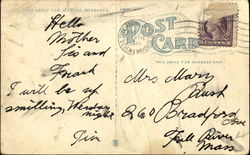 THIS SPACE FOR WRITING MESSAGES.
POST
CARD
THIS SPACE FOR ADDRESS ONLY.
CENTS
Hello
Mother
Sis and
Frank
I will be up
smilling, Thursday
night
Jim
Mrs Mary
Rush
260 Bradford Ave
Fall River
Mass